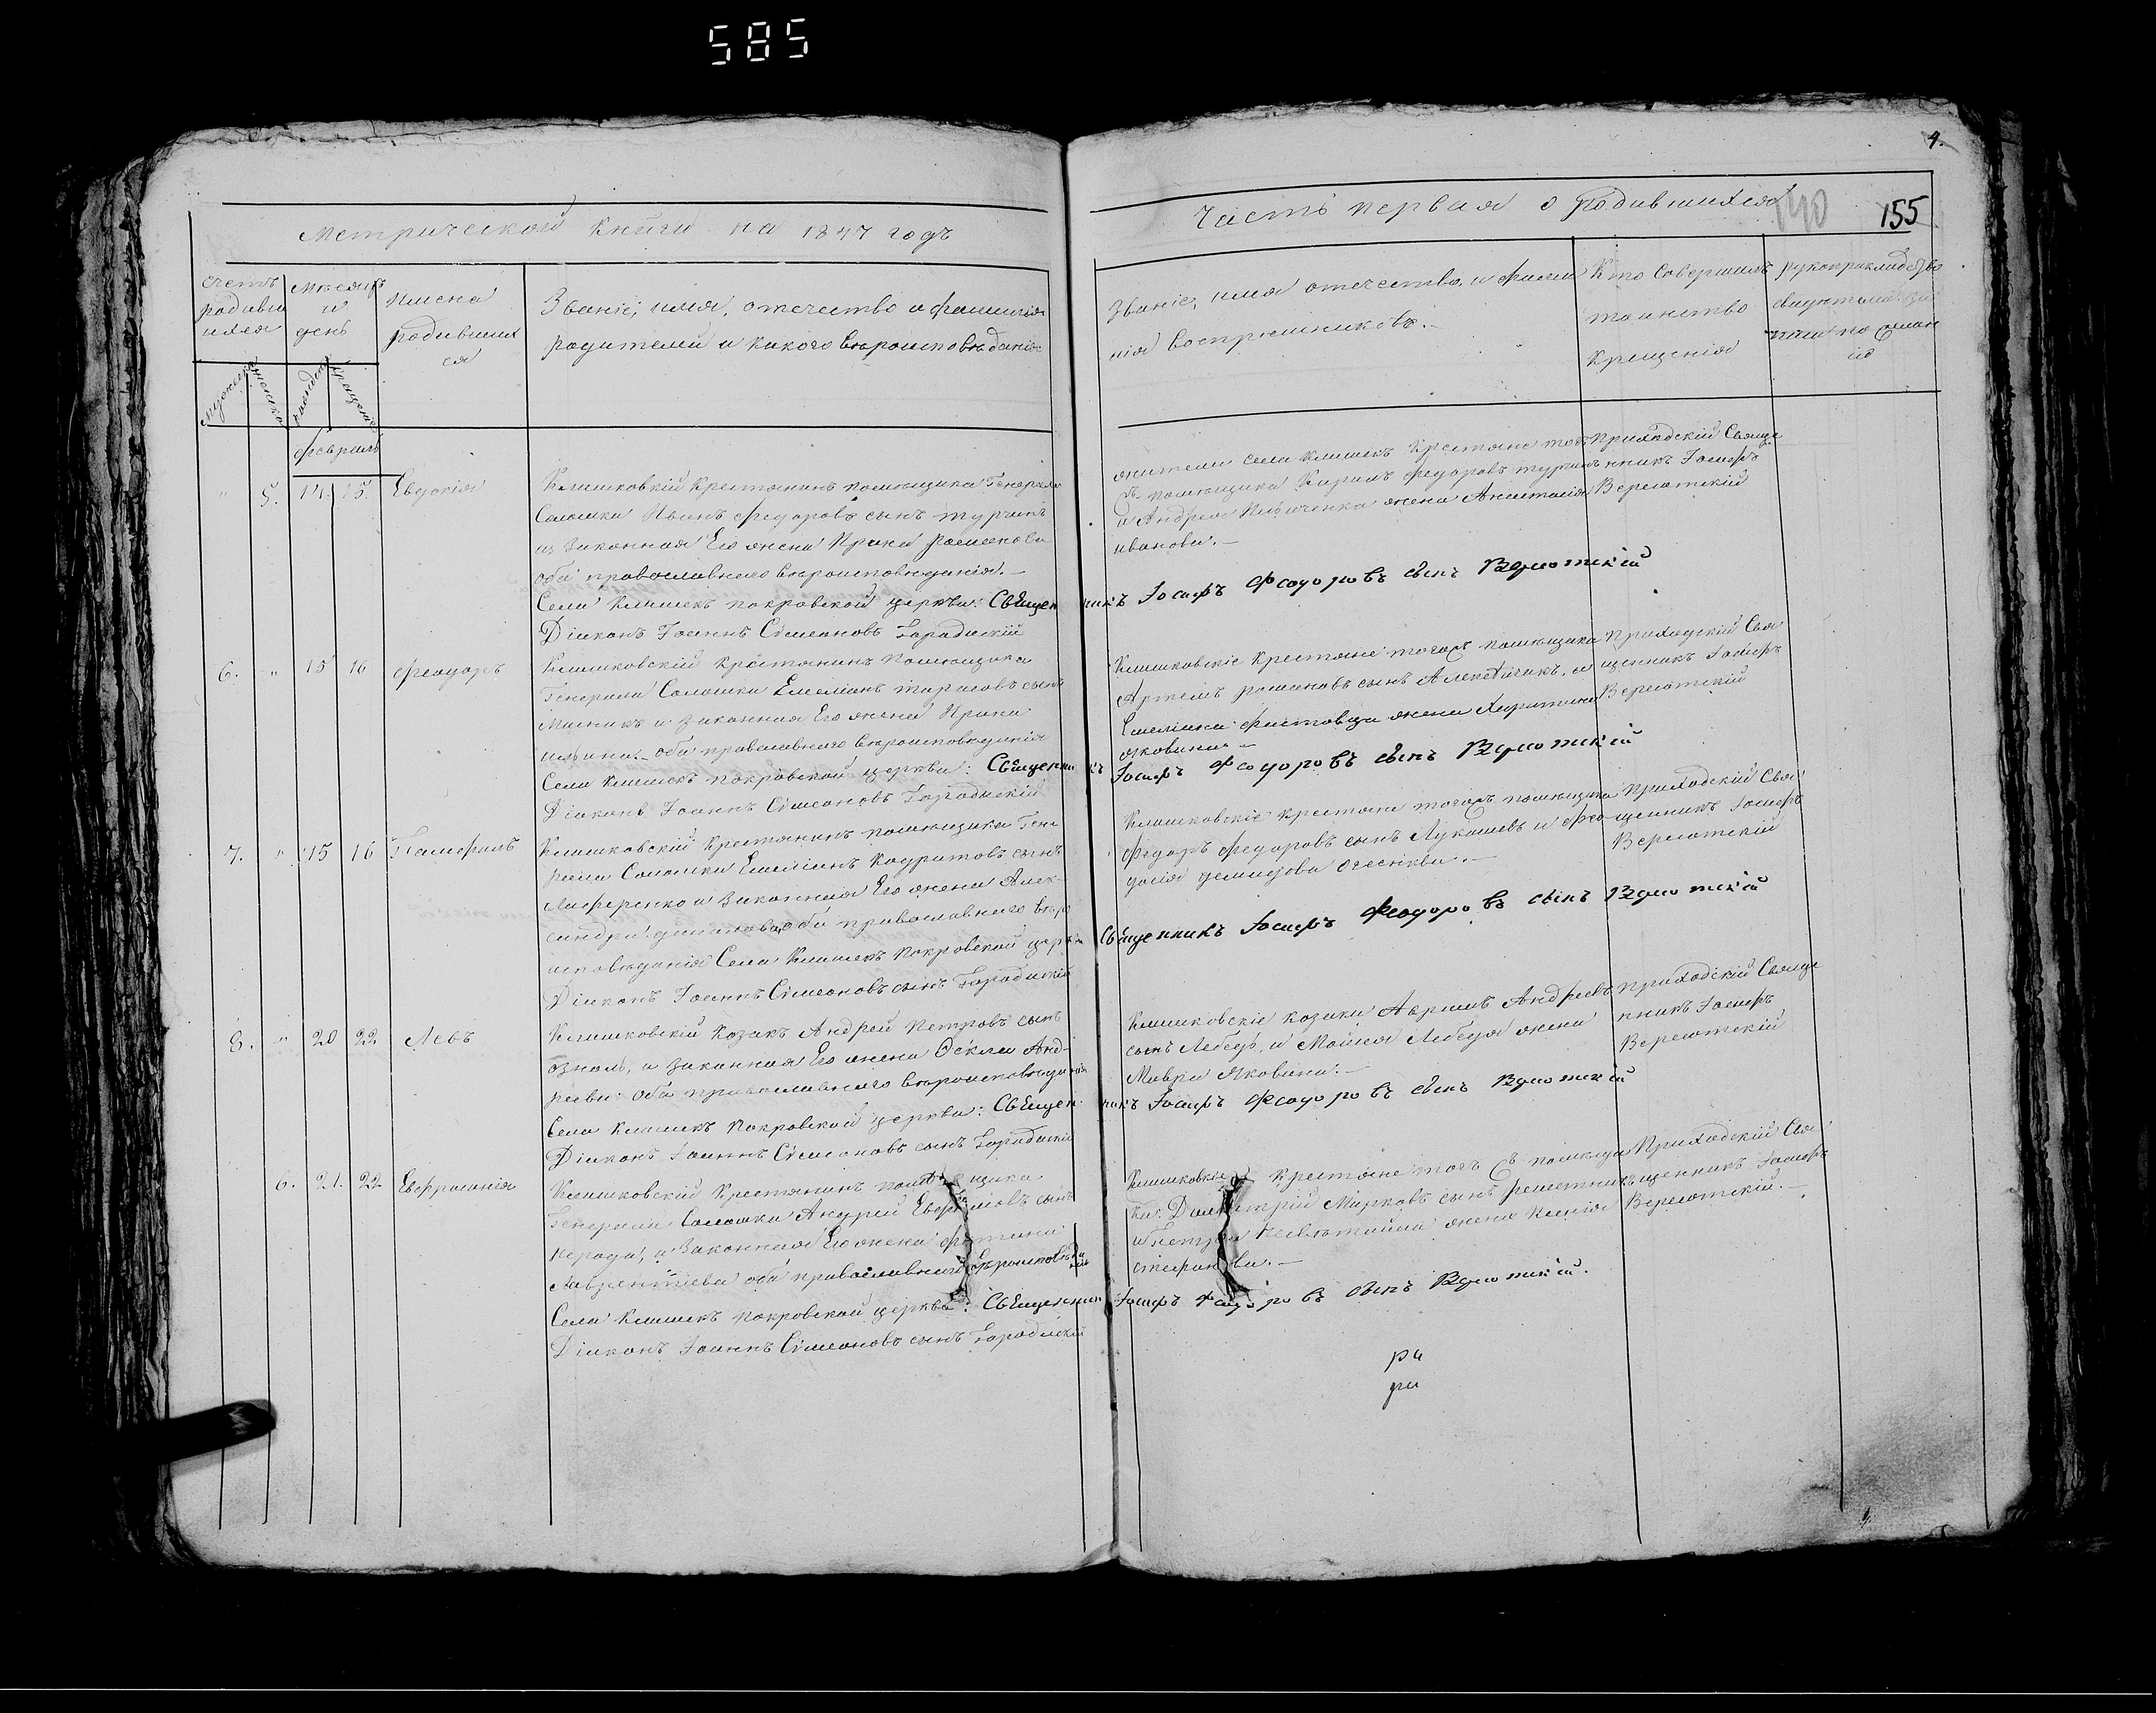 585
4.
Метрической Книги на 1847 годъ
Часть первая о родившихся
140
155
счетъ родивши ихся
мужеска
женска
Месяцъ и день
рождения
крещения
Имена родивших ся
Званіе, имя, отечество и фамилія
родителей и какого вероисповеданія
Званіе, имя отечество, и фами
лія воспріемниковъ.
Кто Совершилъ
таинство
крещенія
рукоприкладство
свидетелей за
писи по желан
ію
февраль
" 5. 14. 15. Евдокія
Клишковскій Крестянинъ помѣщика Генерала
Саломки Иванъ Федоровъ сынъ Турчинъ
и законная Его жена Ирина Романова
оба православнаго вѣроисповѣданія.
Села Клишекъ покровской церкви: Священникъ Іосифъ Феодоровъ сынъ Верготскій
Діаконъ Іоаннъ Сѵмеоновъ Городискій
жители села Клишекъ Крестяне тогожъ помѣщика Кирилъ Федоровъ Турчинъ
и Андрея жена Анастасія
иванова.
Приходскій Свяще
нникъ Іосифъ
Верготскій
6. " 15 16 Феодоръ
Клишковскій Крестянинъ Помѣщика
Генерала Саломки Емеліанъ Тарасовъ сынъ
Мисникъ и законная Его жена Ирина
оба православнаго вѣроисповѣданія
Села Клишекъ покровской церкви: Священникъ Іосифъ Феодоровъ сынъ Верготскій
Діаконъ Іоаннъ Сѵмеоновъ Городискій
Клишковскіе Крестяне тогожъ помѣщика
Артемъ Романовъ сынъ и
Емеліана жена Харитина
яковлева
Приходскій Свя
щенникъ Іосифъ
Верготскій
7. " 15 16 Памфилъ
Клишковскій Крестянинъ помѣщика Гене
рала Саломки Емеліанъ Кодратовъ сынъ
и Законная Его жена Алек
сандра оба православнаго вѣро
исповѣданія Села Клишекъ Покровской церкви Священникъ Іосифъ Феодоровъ сынъ Верготскій
Діаконъ Іоаннъ Сѵмеоновъ сынъ Городискій
Клишковскіе крестяне тогожъ помѣщика
Федоръ Федоровъ сынъ Лукашевъ и Фео
досія Демидова
Приходскій Свя
щенникъ Іосифъ
Верготскій
8. " 20 22 Левъ
Клишковскій Козакъ Андрей Петровъ сынъ
и законная Его жена Ѳекла Анд
реева оба православнаго вѣроисповѣданія
Села Клишекъ Покровской церкви: Священникъ Іосифъ Феодоровъ сынъ Верготскій
Діаконъ Іоаннъ Сѵмеоновъ сынъ Городискій
Клишковскіе козаки Авраамъ Андреевъ
сынъ Лебедь, и Моисея Лебедя жена
Мавра Яковлева.
Приходскій Свяще
нникъ Іосифъ
Верготскій
6. 21. 22 Евфросинія
Клишковскій Крестянинъ помѣщика
Генерала Саломки Андрей сынъ
и Законная Его жена Фотинія
Лаврентіева оба православнаго вѣроисповѣданія
Села Клишекъ покровской церкви: Священникъ Іосифъ Феодоровъ сынъ Верготскій.
Діаконъ Іоаннъ Сѵмеоновъ сынъ Городискій
Клишковскіе Крестяне тогожъ помѣщи
ка: Димитрій Марковъ сынъ Решетникъ
и Петра жена Ксенія
стефанова.
Приходскій Свя
щенникъ Іосифъ
Верготскій.
ра
ра